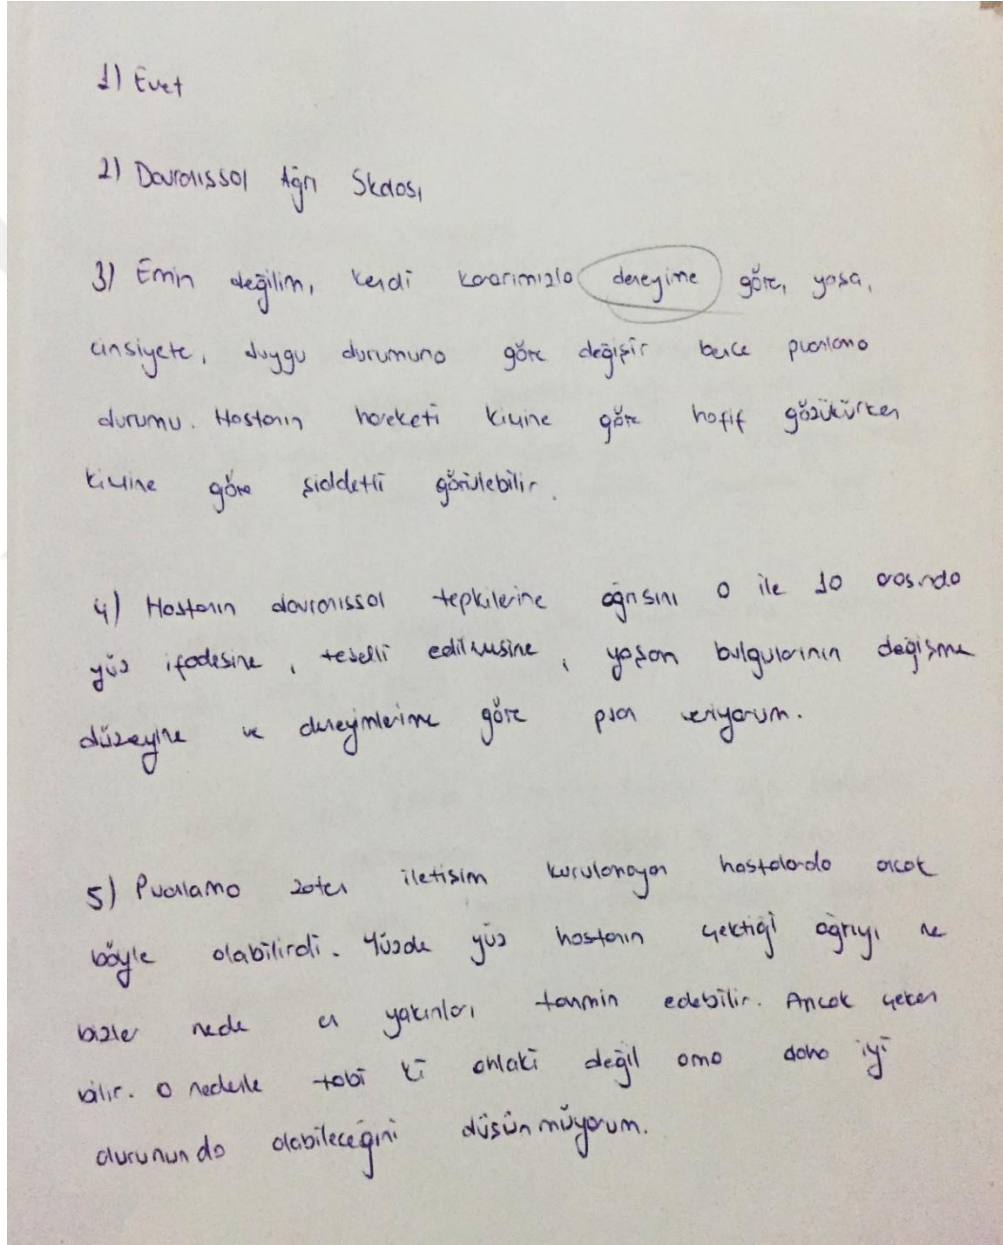 1) Evet
2) Davranışsal Ağrı Skalası
3) Emin değilim, kendi kararımızla deneyime göre, yaşa,
cinsiyete, duygu durumuna göre değişir bence puanlama
durumu. Hastanın hareketi kimine göre hafif gözükürken
kimine göre şiddetli görülebilir.
4) Hastanın davranışsal tepkilerine ağrısını 0 ile 10 arasında
yüz ifadesine, teselli edilmesine, yaşam bulgularının değişme
düzeyine ve deneyimlerime göre puan veriyorum.
5) Puanlama zaten iletişim kurulamayan hastalarda ancak
böyle olabilirdi. Yüzde yüz hastanın çektiği ağrıyı ne
bizler nede en yakınları tahmin edebilir. Ancak çeken
bilir. O nedenle tabi ki ahlaki değil ama daha iyi
durumunda olabileceğini düşünmüyorum.